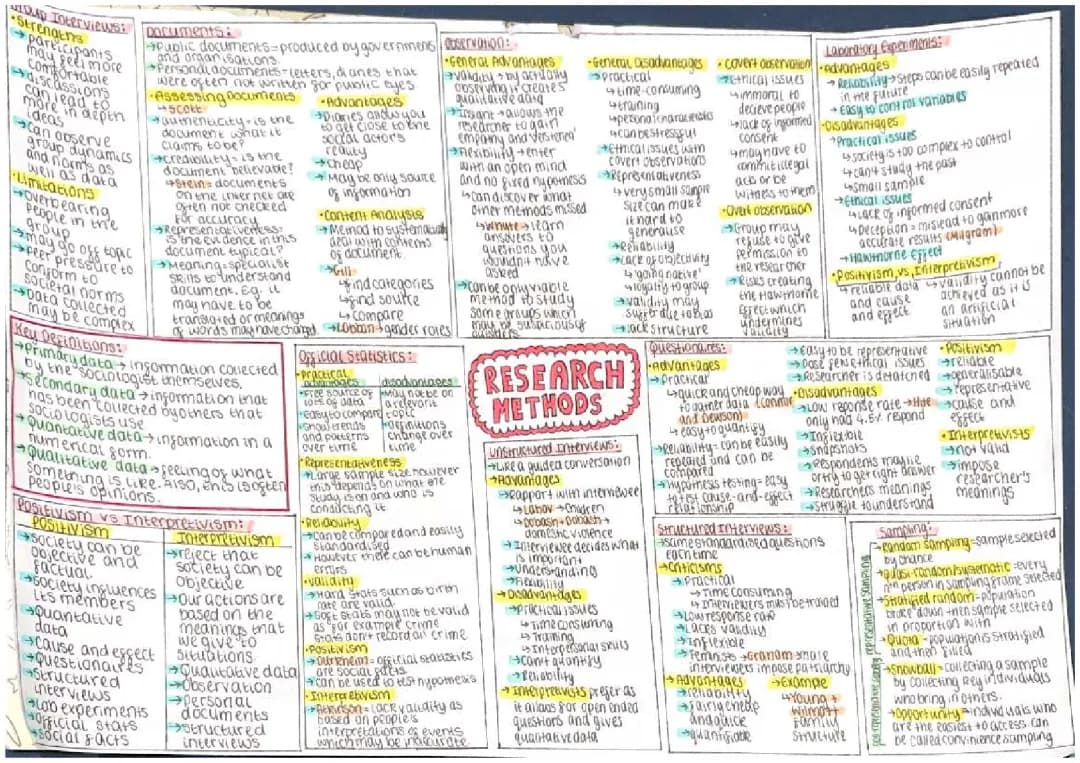 Group Interviews:
•Strengths
→participants
may feel more
comfortable
→discussions
can lead to
more in depth
ideas
→can observe
group dynamics
and norms as
well as data
•Limitations
→overbearing
people in the
group
→may go off topic
→peer pressure to
conform to
societal norms
→Data collected
may be complex
Documents:
→Public documents=produced by governments
and organisations.
→Personal documents=letters, diaries that
were often not written for public eyes.
•Assessing documents
→Scott
→authenticity=is the
document what it
claims to be?
→Credibility=is the
document believable?
↳Stein=documents
on the internet are
often not checked
for accuracy
→Representativeness=
is the evidence in this
document typical?
→Meaning=specialist
skills to understand
document. E.g. it
may have to be
translated or meanings
of words may have changed
•Advantages
→Diaries allow you
to get close to the
social actors
reality
→Cheap
→May be only source
of information
•Content Analysis
→Method to systematically
deal with contents
of document
→Gill
↳find categories
↳find source
↳compare
→Lobban→gender roles
Observation:
•General Advantages
→validity→by actually
observing it creates
qualitative data
→Insight→allows the
researcher to gain
empathy and 'verstehen'
→flexibility→enter
with an open mind
and no fixed hypothesis
↳can discover what
other methods missed
↳Whyte→learn
answers to
questions you
wouldn't have
asked
→can be only viable
method to study
some groups which
may be suspicious of
outsiders
•General Disadvantages
→practical
↳time-consuming
↳training
↳personal characteristics
↳can be stressful
→Ethical issues with
covert observations
→Representativeness
↳very small sample
size can make
it hard to
generalise
→Reliability
→lack of objectivity
↳'going native'
↳loyalty to group
→validity may
suffer due to bias
→lack structure
•covert observation
→Ethical issues
↳immoral to
decieve people
↳lack of informed
consent
↳may have to
commit illegal
acts or be
witness to them
•Overt observation
→Group may
refuse to give
permission to
the researcher
→Risks creating
the Hawthorne
Effect which
undermines
validity
Laboratory Experiments:
•Advantages
→Reliability→Steps can be easily repeated
in the future
→Easy to control variables
•Disadvantages
→Practical issues
↳society is too complex to control
↳can't study the past
↳small sample
→Ethical issues
↳Lack of informed consent
↳Deception=mislead to gain more
accurate results (Milgram)
→Hawthorne Effect
•Positivism vs, Interpretivism
↳reliable data
and cause
and effect
↳validity cannot be
achieved as it is
an artificial
situation
Key Definitions:
→Primary data→information collected
by the sociologist themselves.
→Secondary data→information that
has been collected by others that
sociologists use
→Quantative data→information in a
numerical form.
→Qualitative data→feeling of what
something is like. Also, this is often
people's opinions.
Official Statistics:
•Practical
advantages
→Free source of
lots of data
→easy to compare
→Show trends
and patterns
over time
disadvantages
→May not be on
relevant
topic
→definitions
change over
time
•Representativeness
→Large sample size however
this depends on what the
study is on and who is
conducting it
•Reliability
→Can be compared and easily
standardised
→However there can be human
errors
•Validity
→Hard Stats such as birth
rate are valid.
→Soft Stats may not be valid
as for example crime
stats don't record all crime
•Positivism
→Durkheim=official statistics
are social facts
→can be used to test hypothesis
•Interpretivism
→Atkinson=Lack validity as
based on people's
interpretations of events
which may be inaccurate
RESEARCH
METHODS
Unstructured Interviews:
→Like a guided conversation
→Advantages
→Rapport with interviewee
↳Labov→Children
↳Dobash+Dobash→
domestic violence
→Interviewee decides what
is important
→understanding
→flexibility
→Disadvantages
→practical issues
↳Time consuming
↳Training
↳Interpersonal skills
→Can't quantify
→Reliability
→Interpretivists prefer as
it allows for open ended
questions and gives
qualitative data
Questionaires:
•Advantages
→Practical
↳quick and cheap way
to gather data (Connor
and Dewson)
↳easy to quantify
→Reliability=can be easily
repeated and can be
compared
→Hypothesis testing=easy
to test cause-and-effect
relationship
→Easy to be representative
→Pose few ethical issues
→Researcher is detached
•Disadvantages
→Low reponse rate→Hite
only had 4.5% respond
→Inflexible
→Snapshots
→Respondents may lie
or try to get right answer
→Researchers meanings
→Struggle to understand
•Positivism
→reliable
→generalisable
→representative
→cause and
effect
•Interpretivists
→not valid
→impose
researcher's
meanings
Positivism vs Interpretivism:
Positivism
→society can be
objective and
factual.
→Society influences
its members
→Quantative
data
→Cause and effect
→Questionaires
→Structured
interviews
→Lab experiments
→Official stats
→Social facts
Interpretivism
→reject that
society can be
objective
→Our actions are
based on the
meanings that
we give to
situations.
→Qualitative data
→Observation
→Personal
documents
→structured
interviews
Structured Interviews:
→Same standardised questions
each time
→Criticisms
→Practical
→Time consuming
↳Interviewers must be trained
→Low response rate
→Lacks validity
→Inflexible
→Feminists→Graham=male
interviewers impose patriarchy
→Advantages
→reliability
→fairly cheap
and quick
→quantifiable
→Example
→Young+
Wilmott
family
structure
Sampling:
→Random sampling=sample selected
by chance
→quasi-random/systematic=every
nth person in sampling frame selected
→Stratified random=population
broke down then sample selected
in proportion with
→Quota=population is stratified
and then filled
→Snowball=collecting a sample
by collecting key individuals
who bring in others.
→Opportunity=individuals who
are the easiest to access. Can
be called convinience sampling
representative sampling